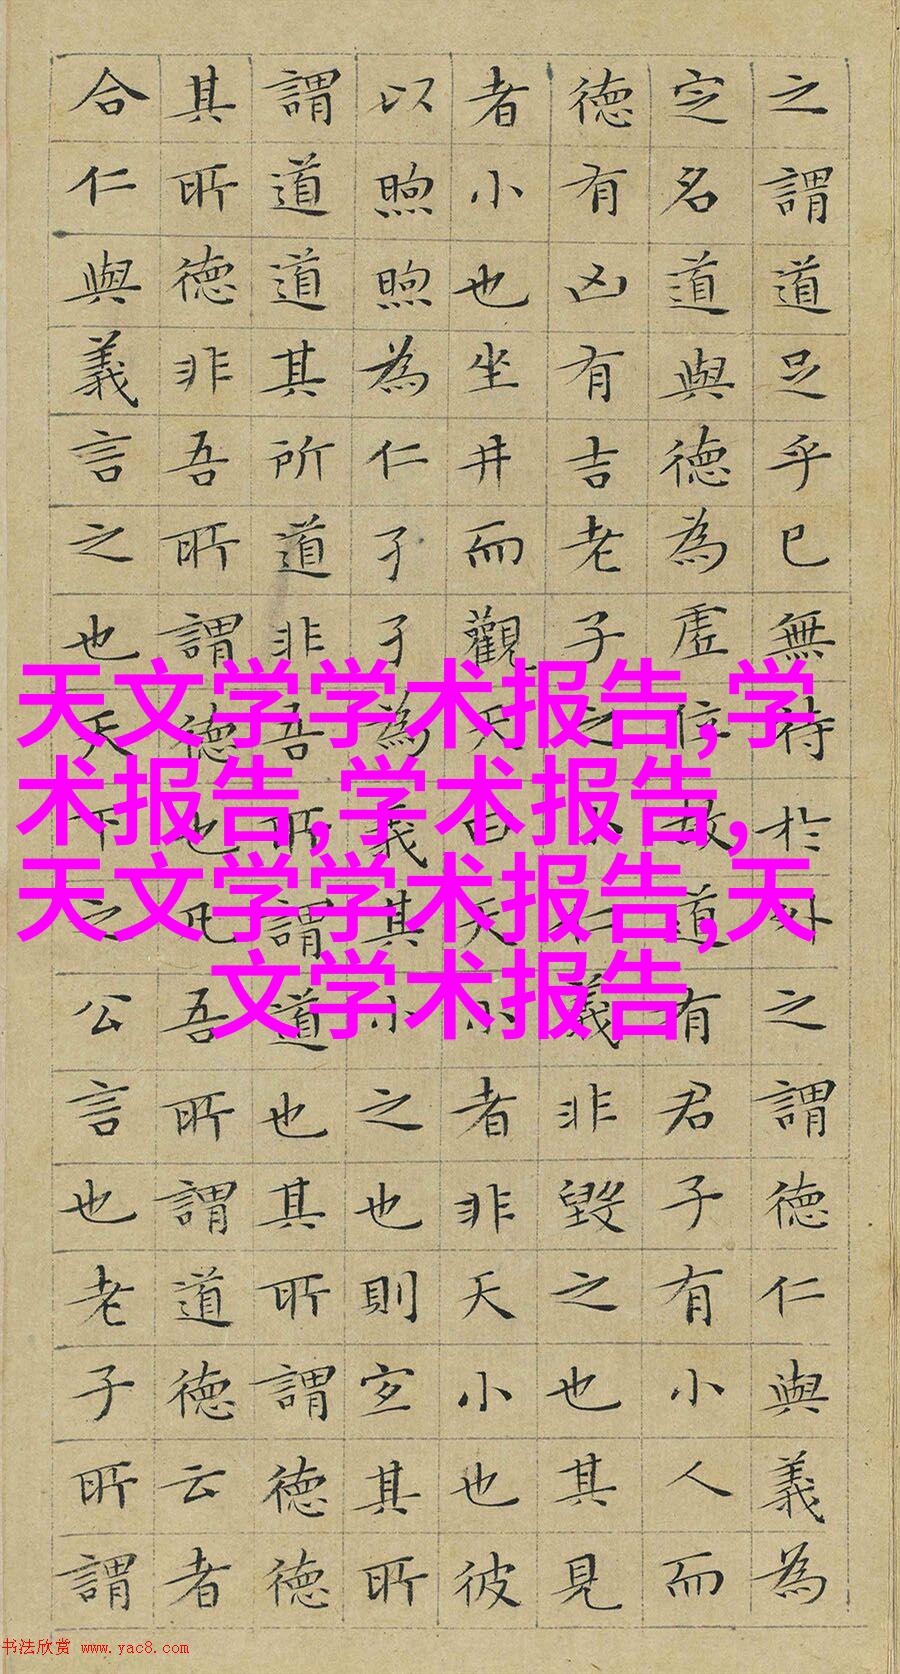 之謂道足乎已無待於外之謂德仁與義為
定名道與德為虛位故道有君子有小人而
德有凶有吉老子之小仁義非毀之也其見
者小也坐井而觀天曰天小者非天小也彼
以煦煦為仁孑孑為義其小之也則宜其所
謂道道其所道非吾所謂道也其所謂德德
其所德非吾所謂德也凡吾所謂道德云者
合仁與義言之也天下之公言也老子所謂
天文学学术报告,学
术报告,学术报告,
天文学学术报告,天
文学术报告
书法欣赏 www.yac8.com